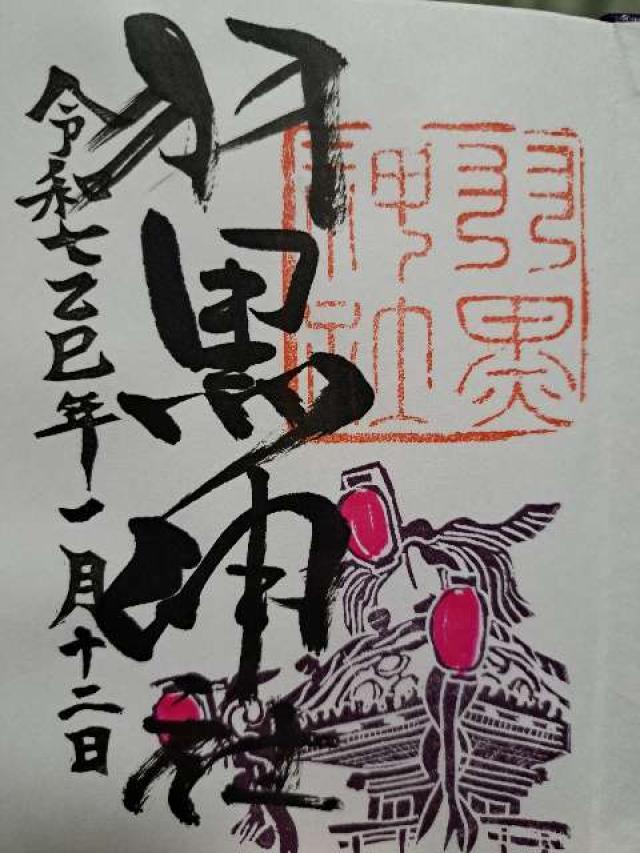 羽黒神社
令和七乙巳年一月十二日
羽黒
神社